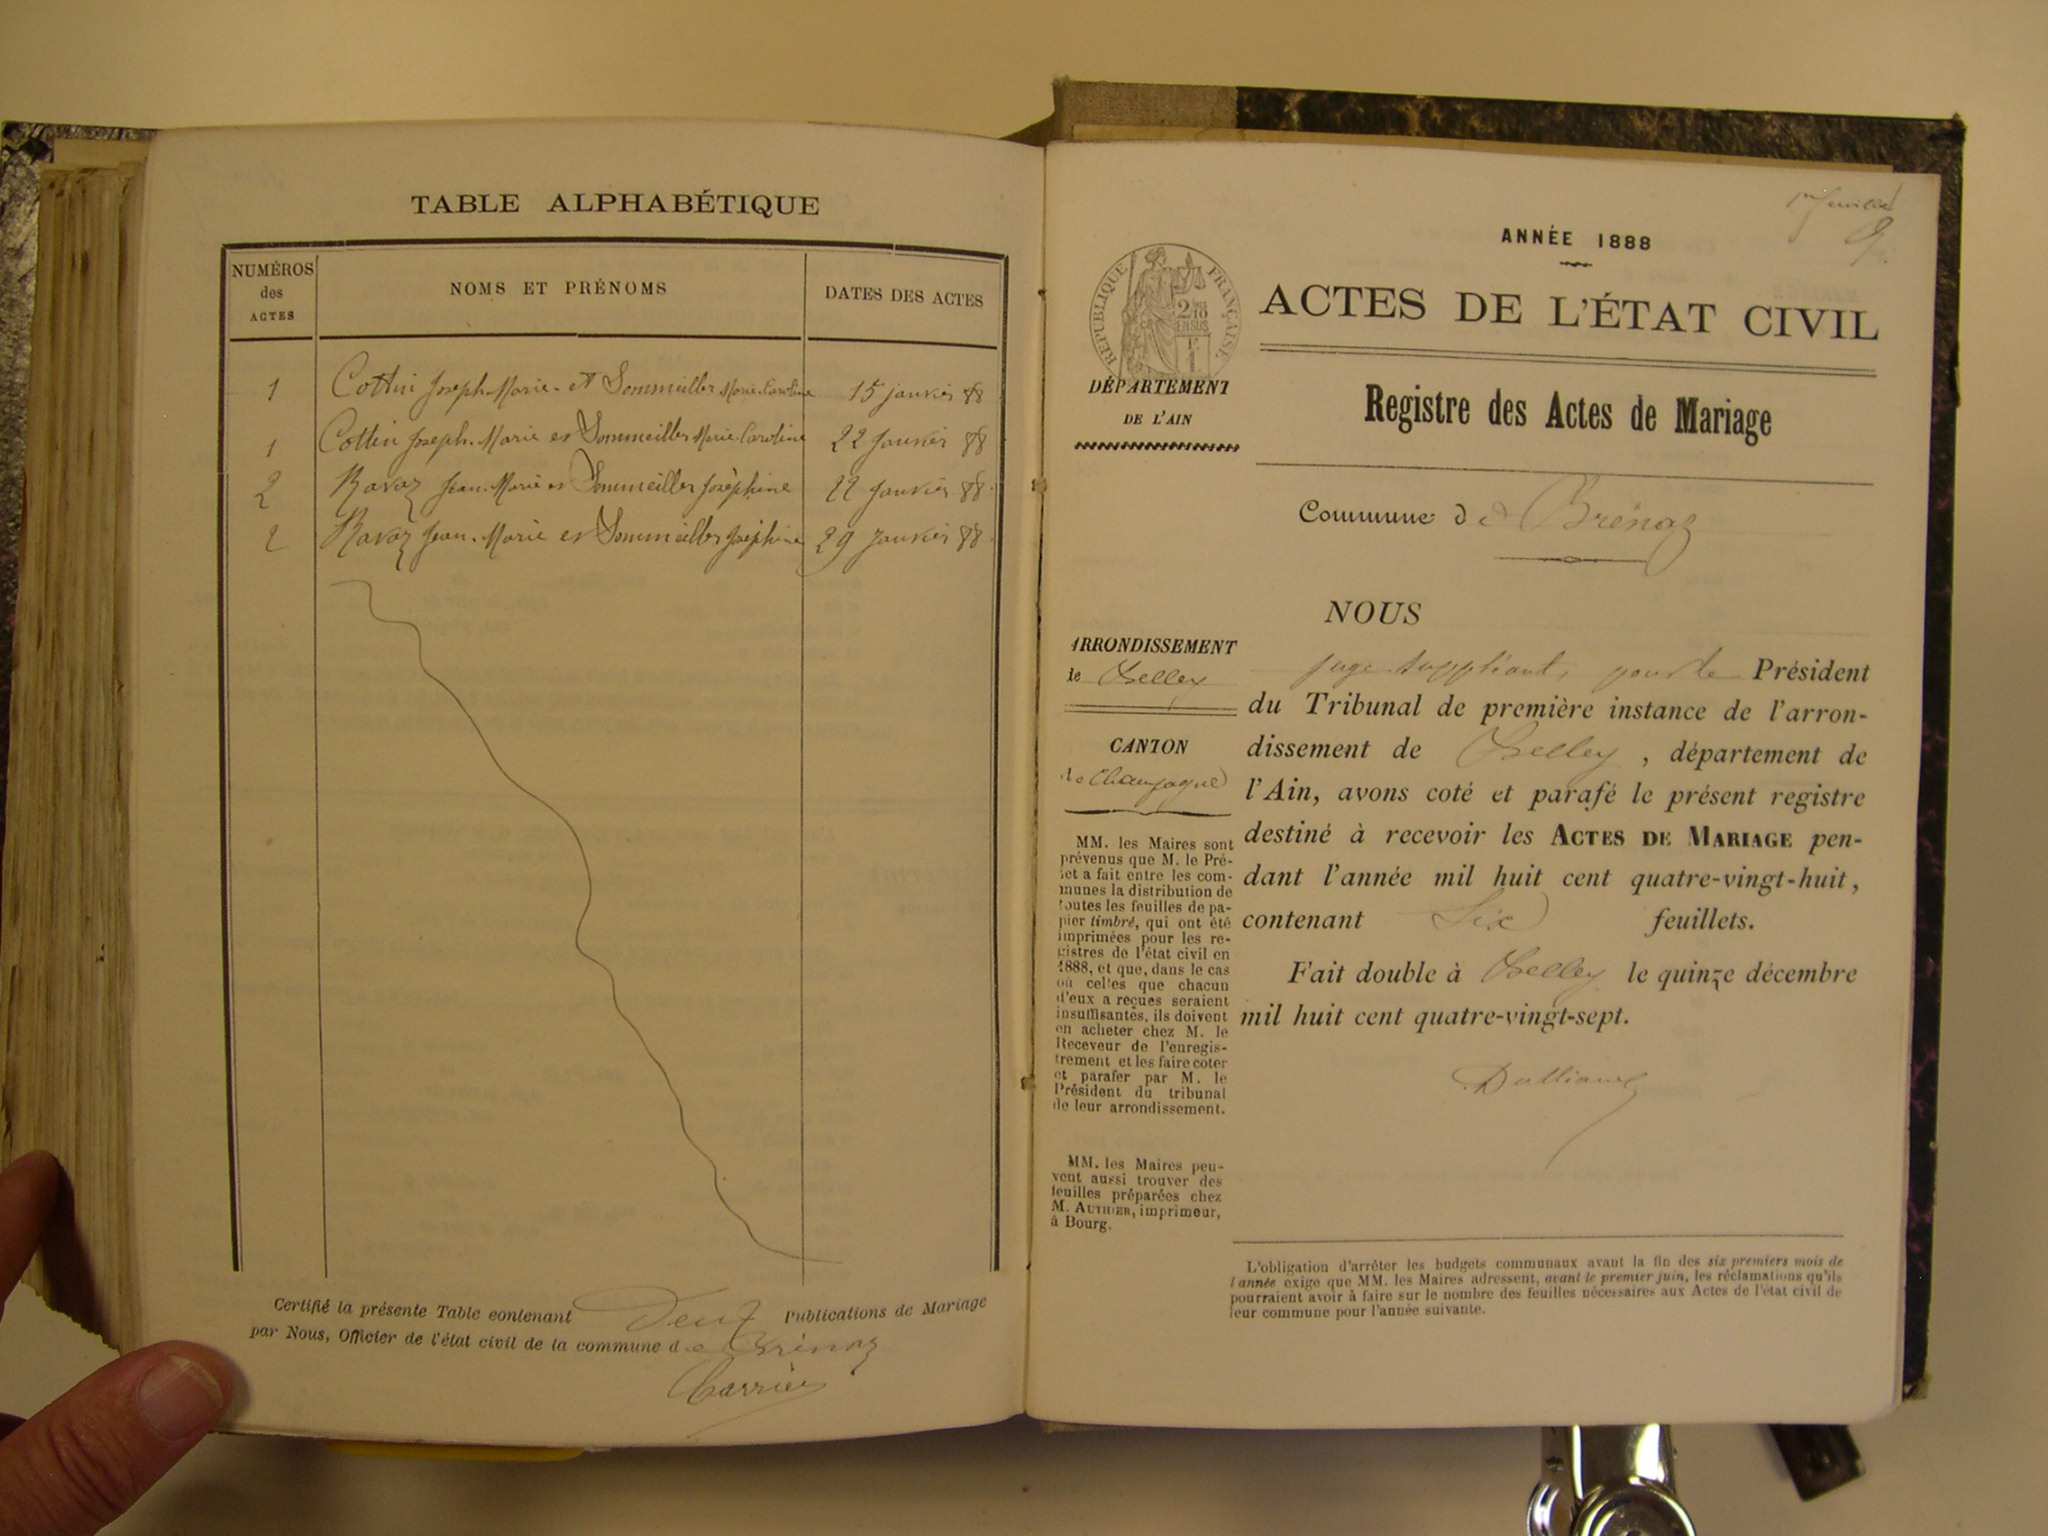 TABLE ALPHABÉTIQUE
NUMÉROS
des
ACTES
NOMS ET PRÉNOMS
DATES DES ACTES
1 Cottin Joseph-Marie et Sommeiller Marie-Caroline 15 janvier 88
1 Cottin Joseph-Marie et Sommeiller Marie-Caroline 22 janvier 88
2 Ravaz Jean-Marie et Sommeiller Joséphine 22 janvier 88
2 Ravaz Jean-Marie et Sommeiller Joséphine 29 janvier 88
Certifié la présente Table contenant Deux Publications de Mariage
par Nous, Officier de l'état civil de la commune de Brénaz
1er feuillet
ANNÉE 1888
RÉPUBLIQUE FRANÇAISE
2/10
EN SUS
ACTES DE L'ÉTAT CIVIL
DÉPARTEMENT
DE L'AIN
Registre des Actes de Mariage
Commune de Brénaz
ARRONDISSEMENT
de Belley
CANTON
de Champagne
MM. les Maires sont
prévenus que M. le Pré-
fet a fait entre les com-
munes la distribution de
toutes les feuilles de pa-
pier timbré, qui ont été
imprimées pour les re-
gistres de l'état civil en
1888, et que, dans le cas
où celles que chacun
d'eux a reçues seraient
insuffisantes, ils doivent
en acheter chez M. le
Receveur de l'enregis-
trement et les faire coter
et parafer par M. le
Président du tribunal
de leur arrondissement.
MM. les Maires peu-
vent aussi trouver des
feuilles préparées chez
M. AUTHIER, imprimeur,
à Bourg.
NOUS
juge suppléant, pour le Président
du Tribunal de première instance de l'arron-
dissement de Belley, département de
l'Ain, avons coté et parafé le présent registre
destiné à recevoir les ACTES DE MARIAGE pen-
dant l'année mil huit cent quatre-vingt-huit,
contenant Six feuillets.
Fait double à Belley le quinze décembre
mil huit cent quatre-vingt-sept.
L'obligation d'arrêter les budgets communaux avant la fin des six premiers mois de
l'année exige que MM. les Maires adressent, avant le premier juin, les réclamations qu'ils
pourraient avoir à faire sur le nombre des feuilles nécessaires aux Actes de l'état civil de
leur commune pour l'année suivante.